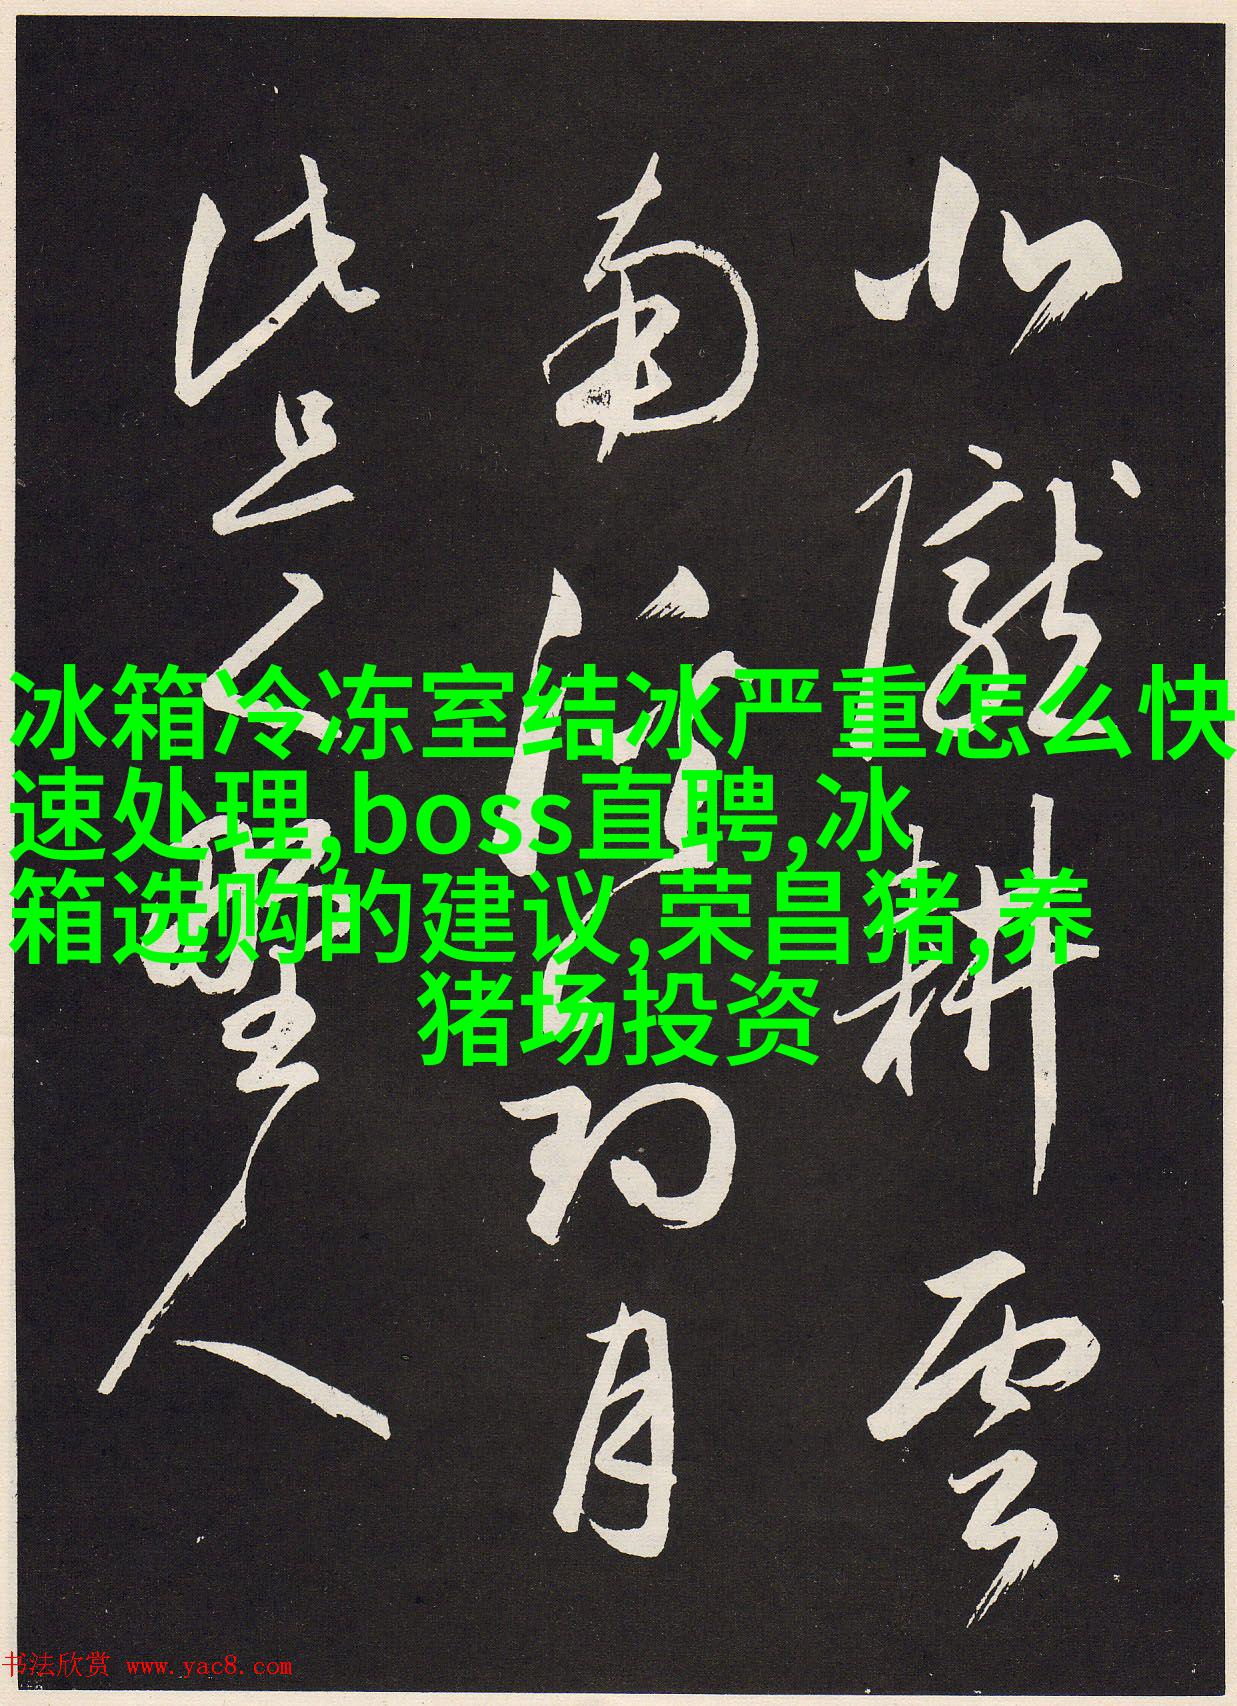 北隴耕雲
南溪釣月
此是野人
冰箱冷冻室结冰严重怎么快
速处理,boss直聘,冰
箱选购的建议,荣昌猪,养
猪场投资
书法欣赏 www.yac8.com